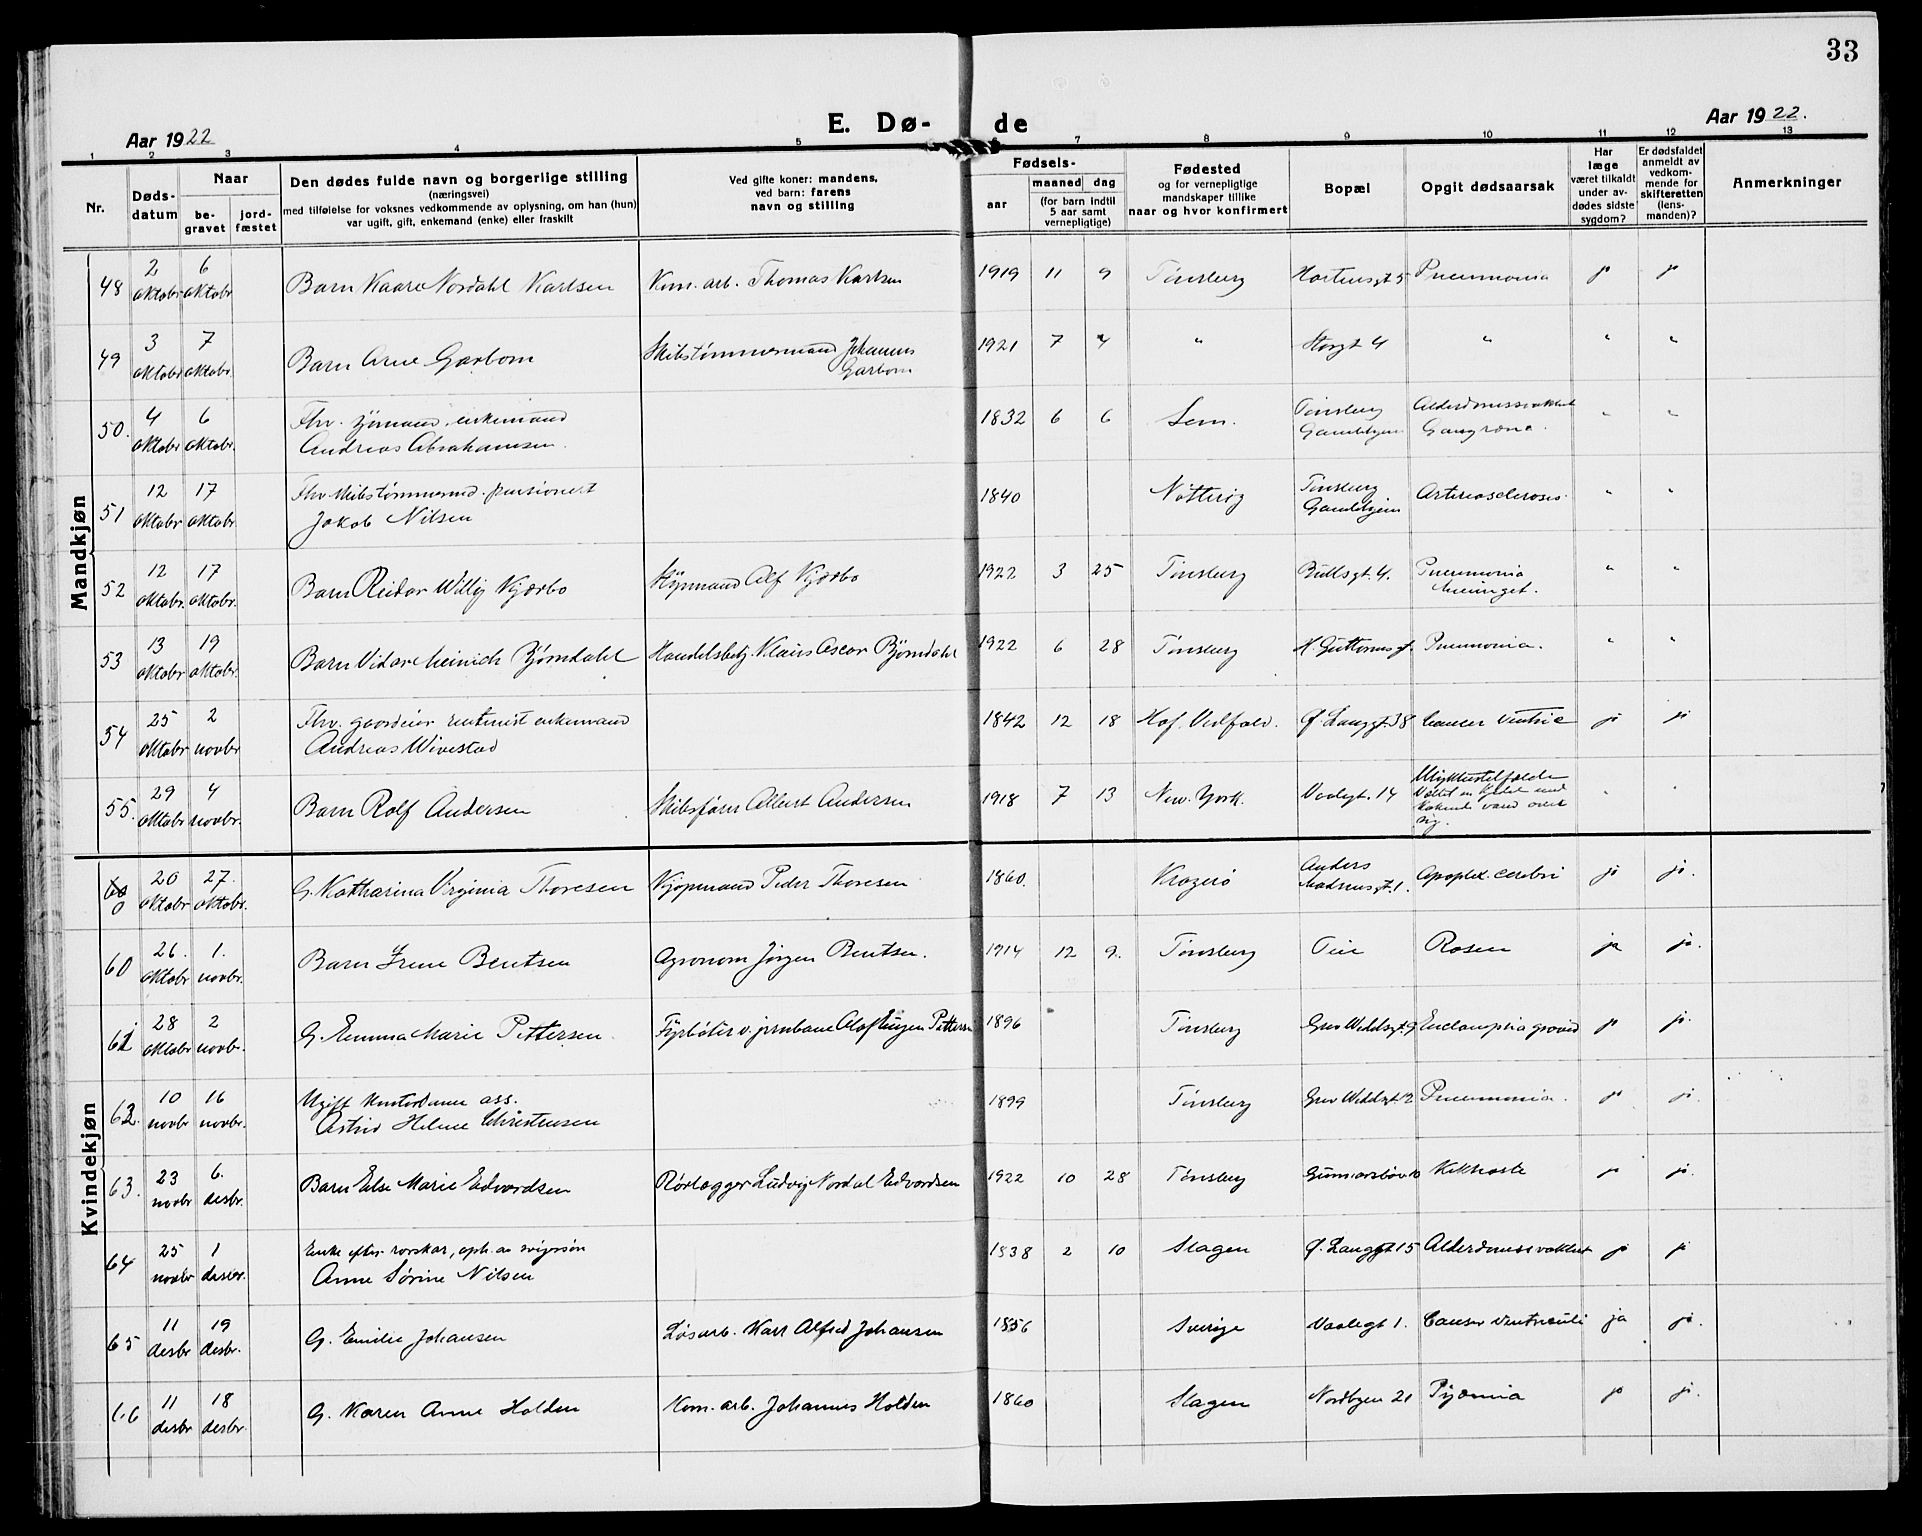 33
Aar 1922
E. Dø-
de
Aar 1922.
1 2 3 4 5 7 8 9 10 11 12 13
Nr.
Døds-
datum
Naar
be-
gravet
jord-
fæstet
Den dødes fulde navn og borgerlige stilling
(næringsvei)
med tilføielse for voksnes vedkommende av oplysning, om han (hun)
var ugift, gift, enkemand (enke) eller fraskilt
Ved gifte koner: mandens,
ved barn: farens
navn og stilling
Fødsels-
aar
maaned dag
(for barn indtil
5 aar samt
vernepligtige)
Fødested
og for vernepligtige
mandskaper tillike
naar og hvor konfirmert
Bopæl
Opgit dødsaarsak
Har
læge
været tilkaldt
under av-
dødes sidste
sygdom?
Er dødsfaldet
anmeldt av
vedkom-
mende for
skifteretten
(lens-
manden)?
Anmerkninger
Mandkjøn
48 2 oktobr 6 oktobr Barn Kaare Nordahl Karlsen Kom. arb. Thomas Karlsen 1919 11 9 Tønsberg Hortensgt 5 Pneumonia ja ja
49 3 oktobr 7 oktobr. Barn Arne Garbom Skibstømmermand Johannes
Garbom 1921 7 4 " Storgt 4 " " "
50. 4 oktobr 6 oktobr. Fhv. sjømand enkemand
Andreas Abrahamsen. 1832 6 6 Sem. Tønsberg
Gamlehjem Alderdomssvakhet
Gangræna. " "
51 12 oktobr 17 oktobr. Fhv skibstømmermd. pensionert
Jakob Nilsen 1840 Nøtterøy Tønsberg
Gamlehjem Arteriosclerosis. " "
52 12 oktobr. 17 oktobr. Barn Reidar Willy Kjærbo Kjøpmand Alf Kjærbo 1922 3 25 Tønsberg Bullsgt. 4. Pneumonia
Meninget. " "
53 13 oktobr 19 oktobr. Barn Vidar Meinich Bjørndahl Handelsbetj. Klaus Oscar Bjørndahl 1922 6 28 Tønsberg H. Guttormsgt. Pneumonia. " "
54 25 oktobr 2 novbr Fhv. gaardeier rentenist enkemand
Andreas Wivestad 1842 12 18 Hof Vestfold. Ø. Langgt. 38 Cancer ventric ja ja
55. 29 oktobr 4 novbr. Barn Rolf Andersen Skibsfører Albert Andersen 1918 7 13 New. York. Vadlgt. 14 Ulykkestilfælde
Væltet en kjedel med
kokende vand over
sig. " "
Kvindekjøn
60 20 oktobr 27. oktobr. G. Katharina Virginia Thoresen Kjøpmand Peder Thoresen 1860. Kragerø Anders
Madsensgt. 1. Apoplex. cerebri ja ja.
60 26. oktobr 1. novbr. Barn Irene Bentsen Agronom Jørgen Bentsen. 1914 12 9. Tønsberg Teie Rosen ja ja.
61 28 oktobr 2 novbr. G. Emma Marie Pettersen. Fyrbøter v. jernbane Olaf Eugen Pettersen 1896 Tønsberg Grev Wedelsgt. 9 Eclampsia gravid ja ja.
62. 10 novbr 16 novbr. Ugift kontordame ass.
Astrid Helene Christensen 1899 Tønsberg Grev Wedelsgt. 2 Pneumonia. ja ja.
63. 23 novbr 6. desbr. Barn Else Marie Edvardsen Rørlægger Ludvig Nordal Edvardsen 1922 10 28 Tønsberg Gunnarsbøv. 10 Kikhoste ja ja.
64 25 novbr 1 desbr. Enke efter rorskar, oph. av svigersøn
Anne Sørine Nilsen 1838 2 10 Slagen Ø. Langgt 15 Alderdomssvakhet ja ja
65 11 desbr 19 desbr. G. Emilie Johansen Løsarb. Karl Alfred Johansen 1856 Sverige Vaalegt 1. Cancer ventriculi ja ja.
66 11 desbr 18 desbr. G. Karen Anne Holden Kom. arb. Johannes Holden 1860 Slagen Nordbyen 21 Pyæmia ja ja.